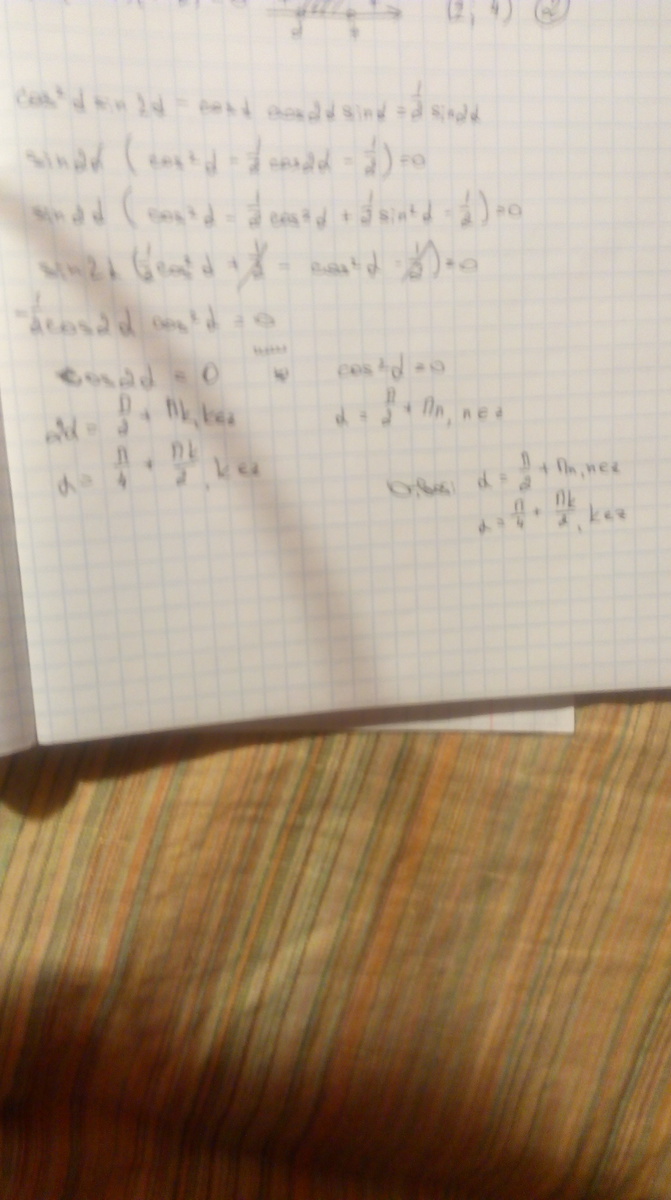 (2; 4) 2
cos² α sin 2α = cos α cos 2α sin α = 1/2 sin 2α
sin 2α ( cos² α = 1/2 cos 2α = 1/2 ) = 0
sin 2α ( cos² α = 1/2 cos² α + 1/2 sin² α - 1/2 ) = 0
sin 2α ( 1/2 cos² α + 1/2 - cos² α - 1/2 ) = 0
-1/2 cos 2α cos² α = 0
cos 2α = 0 cos² α = 0
2α = π/2 + πk, k∈z α = π/2 + πn, n∈z
α = π/4 + πk/2, k∈z
Ответ: α = π/2 + πn, n∈z
α = π/4 + πk/2, k∈z